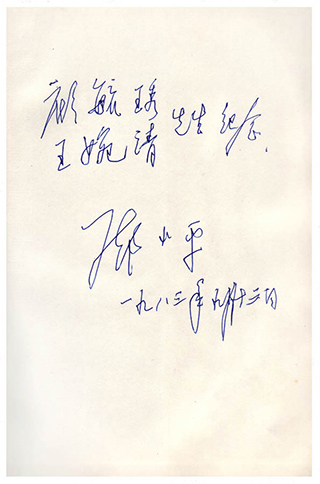 顾毓琇
王婉清 先生纪念
邓小平
一九八三年九月十三日